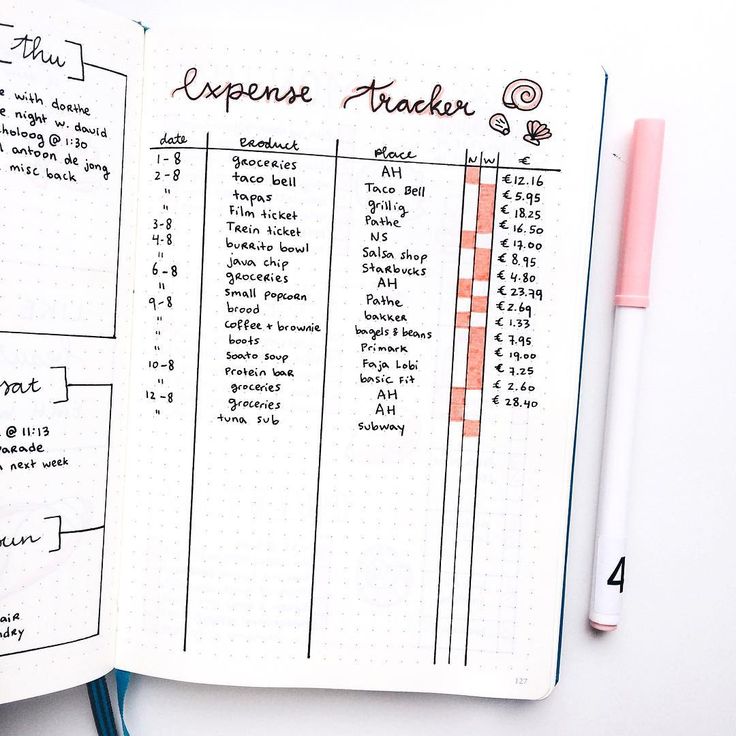 thu
e with dorthe
e night w. david
choloog @ 1:30
l antoon de jong
misc. back
sat
@ 11:13
parade
n next week
sun
air
ndry
Expense tracker
date Product place N W €
1-8 groceries AH €12.16
2-8 taco bell Taco Bell € 5.95
" tapas grillig € 18.25
" Film ticket Pathe € 16.50
3-8 Trein ticket NS € 17.00
4-8 burrito bowl Salsa shop € 8.95
" java chip Starbucks € 4.80
6-8 groceries AH € 23.79
" small popcorn Pathe € 2.69
9-8 brood bakker € 1.33
" coffee + brownie bagels & beans € 7.95
" boots Primark € 19.00
" Soato soup Faja Lobi € 7.25
10-8 Protein bar basic fit € 2.60
" groceries AH € 28.40
12-8 groceries AH
" tuna sub subway
127
4